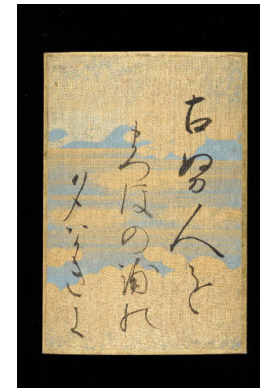 古ぬ人を
まつほの浦れ
夕なきに